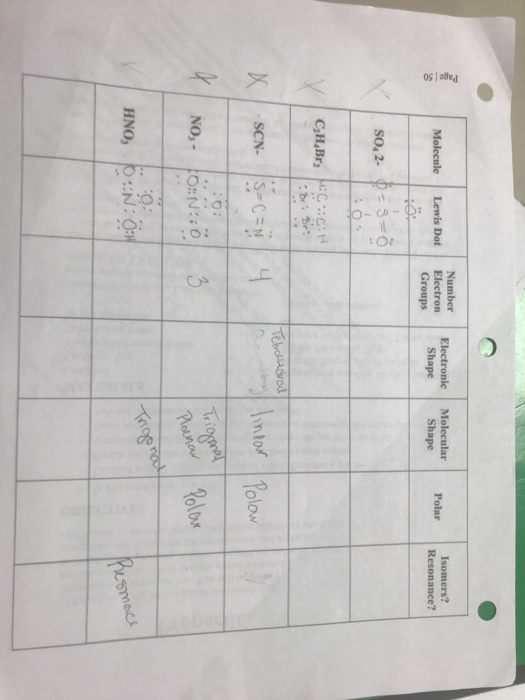 Molecule Lewis Dot Number Electron Groups Electronic Shape Molecular Shape Polar Isomers? Resonance?
SO₄ 2-
:Ö:
O=S=O
:O:
C₂H₄Br₂
H:C::C:H
:Br: Br:
SCN- S=C=N 4 Tetrahedral linear Polar
NO₃ -
:O:
:O::N::O 3 Trigonal Planar Polar
HNO₃
:O:
O::N:O:H Trigonal Resonace
Page | 50